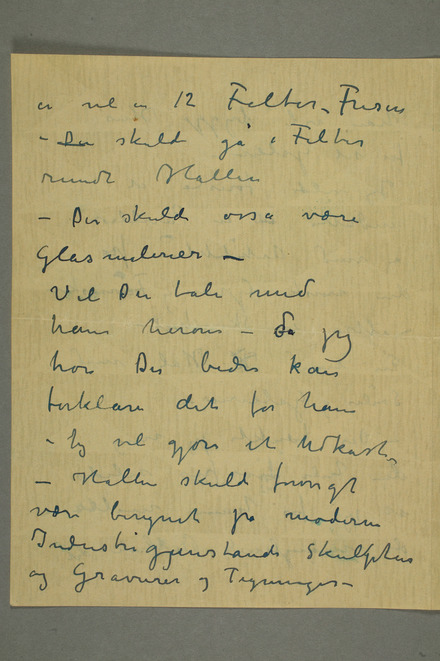 er vel en 12 Felter, Frisen
– Der skulde gå i Felter
rundt Hallen
– Der skulde også være
Glasmalerier –
Vil De tale med
ham herom – da jeg
tror De bedre kan
forklare det for ham
– Jeg vil gjøre et Udkast,
– Hallen skulde forøvrigt
være beregnet på moderne
Industrigjenstande Skulptur
og Gravurer og Tegninger –